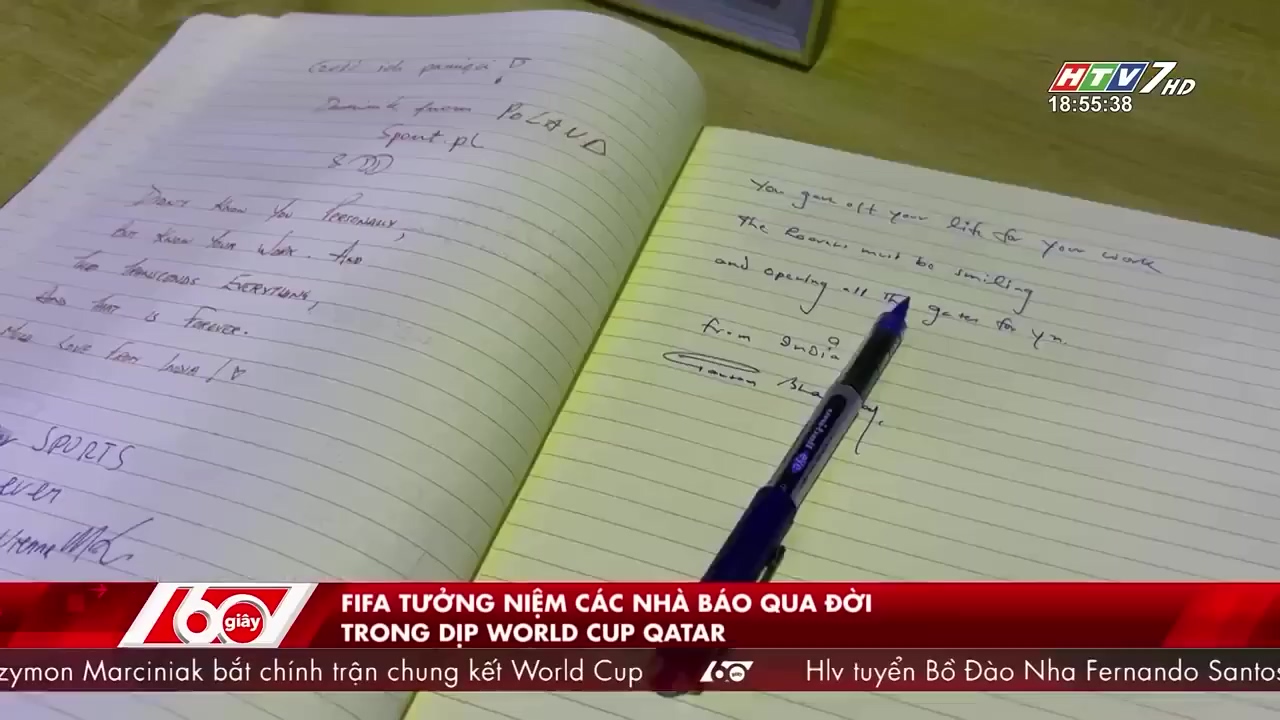 HTV7 HD
18:55:38
from POLAND
Sport.pl
DIDN'T KNOW YOU PERSONALLY,
BUT KNOW YOUR WORK. AND
THAT TRANSCENDS EVERYTHING,
AND THAT IS FOREVER.
MUCH LOVE FROM INDIA
SPORTS
You gave off your life for your work
The must be smiling
and opening all the gates for you.
from India
uniball eye
60 giây
FIFA TƯỞNG NIỆM CÁC NHÀ BÁO QUA ĐỜI
TRONG DỊP WORLD CUP QATAR
zymon Marciniak bắt chính trận chung kết World Cup 60 Hlv tuyển Bồ Đào Nha Fernando Santos